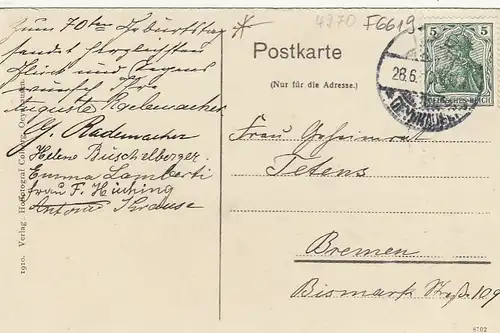 Zum 70ten Geburtstag
sendet herzlichsten
Glück und Segens
wunsch Ihre
Auguste Rademacher
G. Rademacher
Helene Büschelberger
Emma Lamberti
frau F. Hüching
Antonie Krause
1910. Verlag Hofphotograf Oeynhausen
4270 F6619
Postkarte
(Nur für die Adresse.)
5 5
DEUTSCHES REICH
28.6.
OEYNHAUSEN
Frau Geheimrat
Tetens
Bremen
Bismark Straß. 109
6702